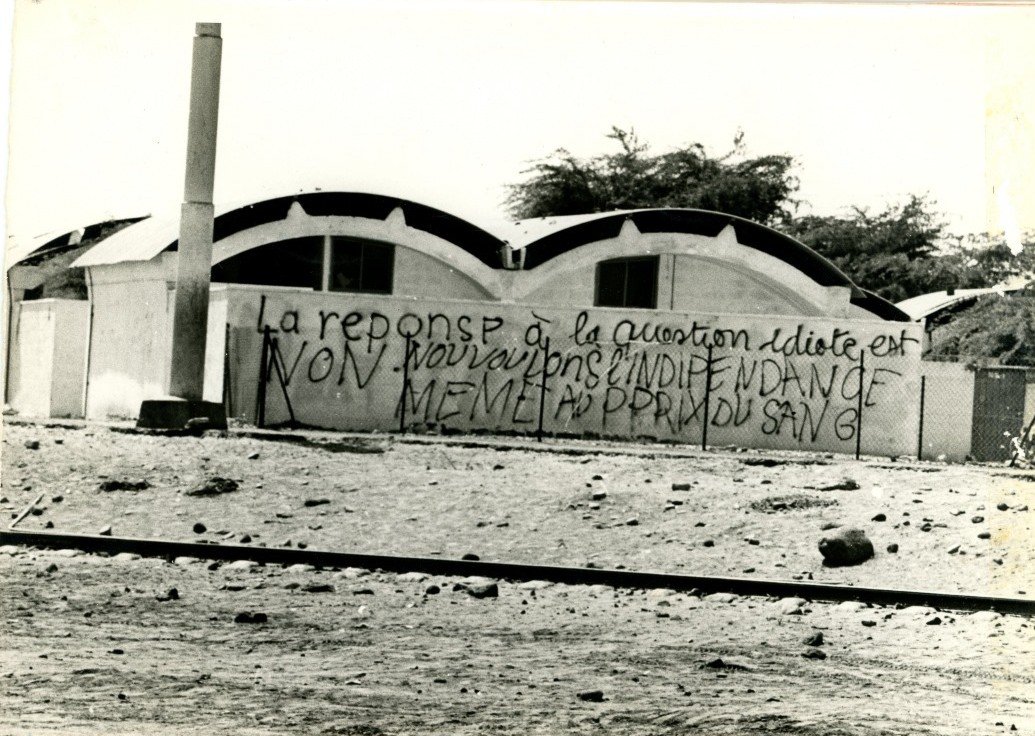 La reponse à la question idiote est
NON. NOUVOULONS L'INDIPENDANCE
MEME AU PPRIX DU SANG